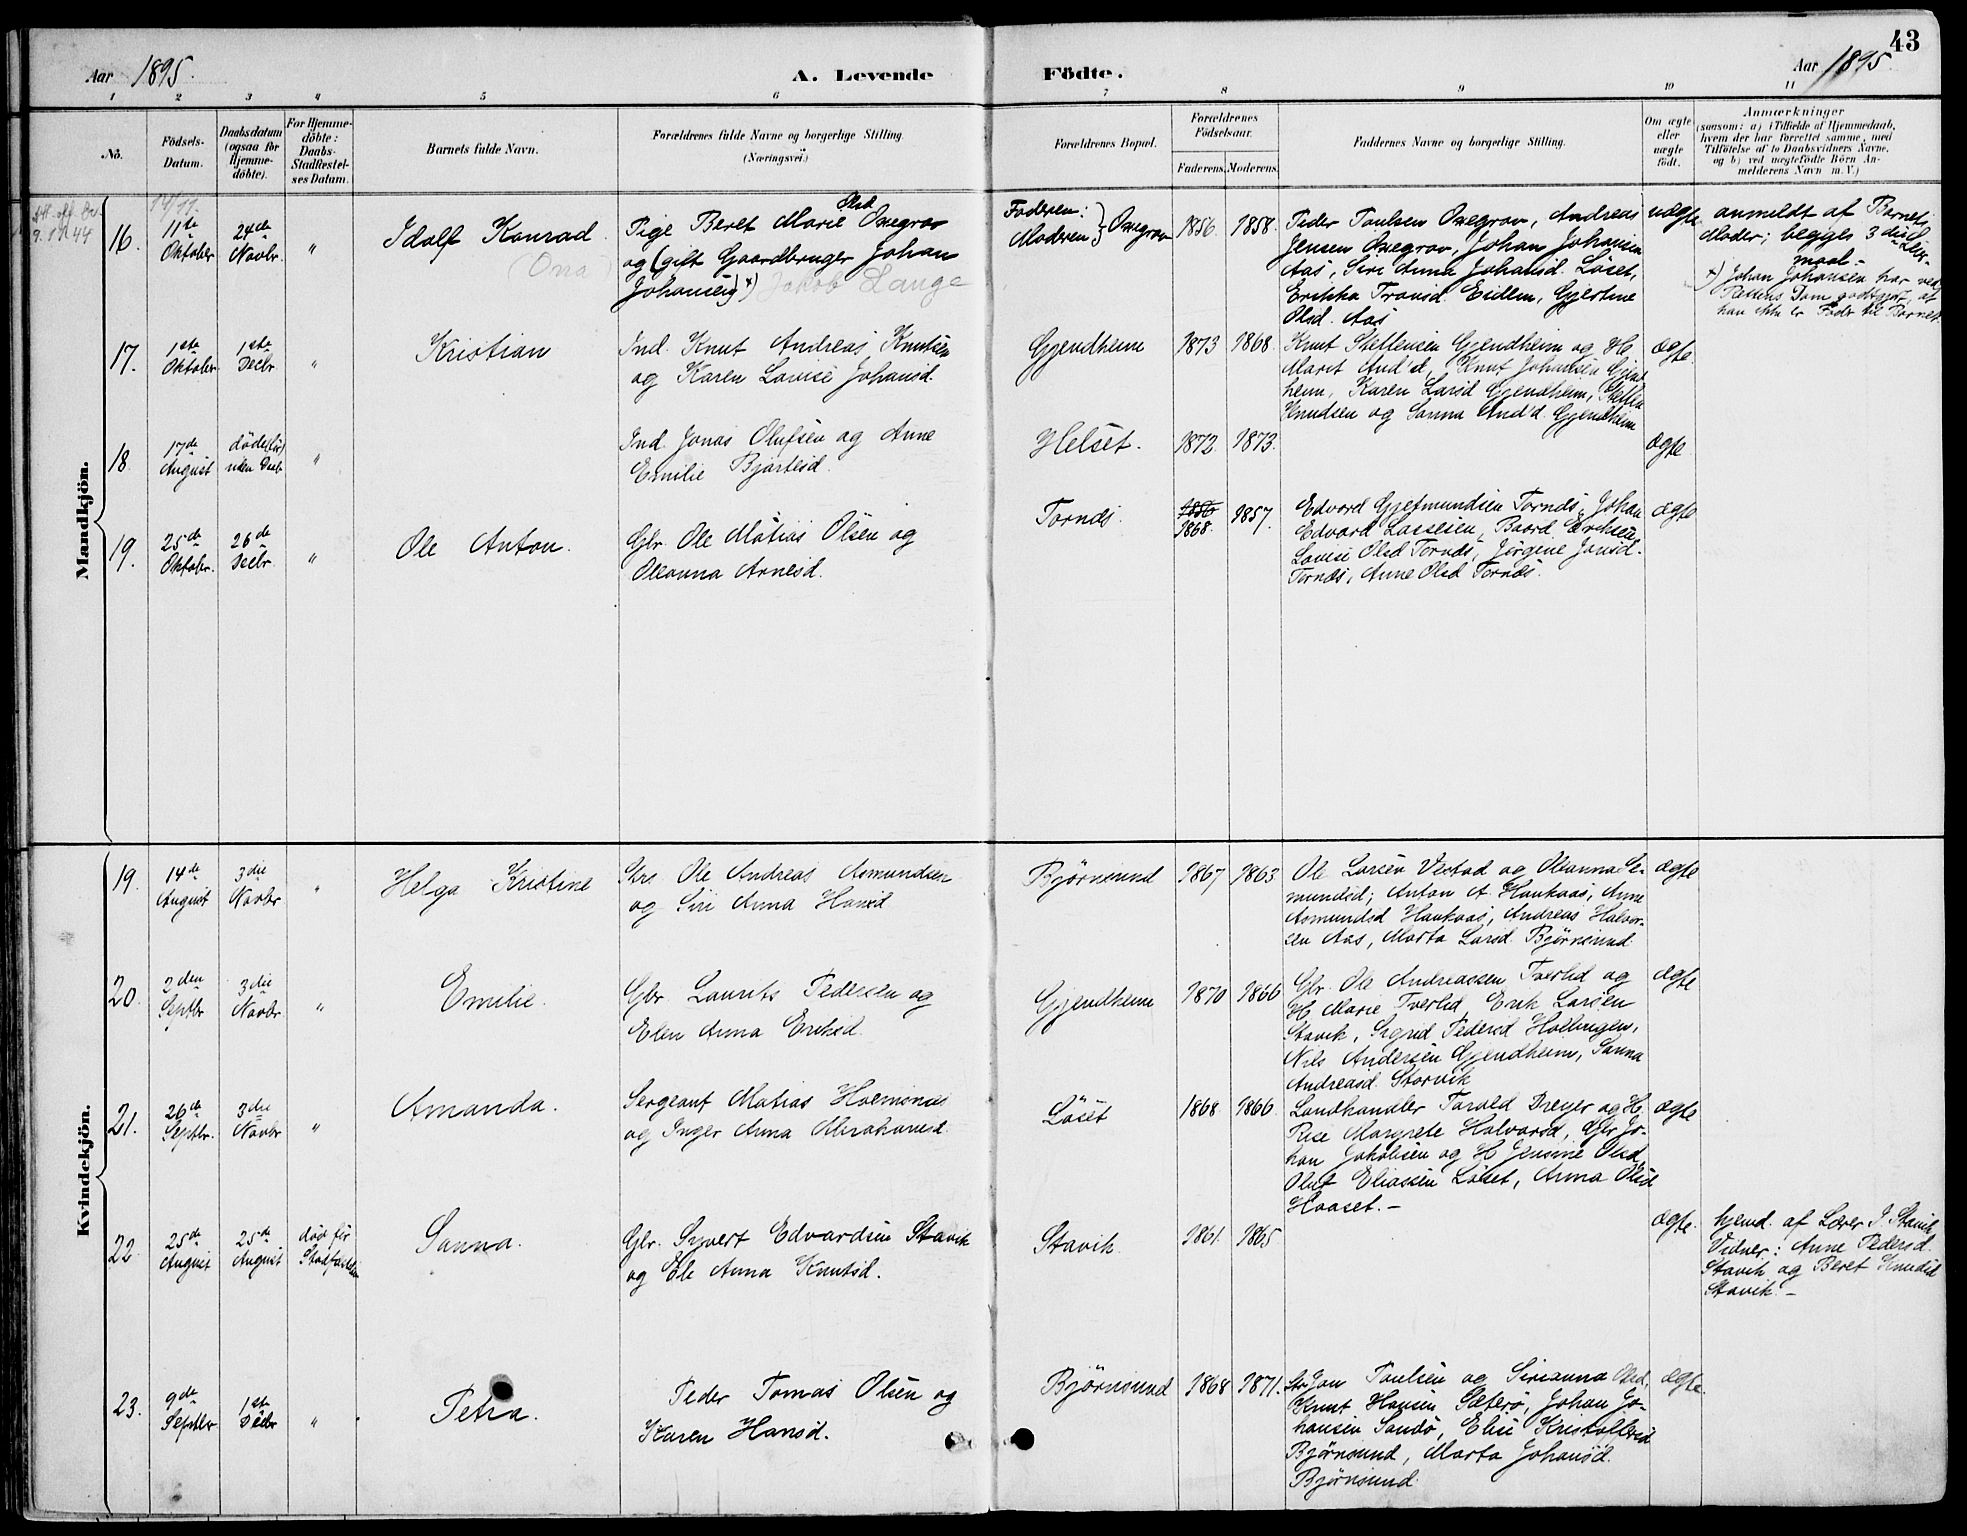 43
Aar 1895.
A. Levende Födte.
Aar 1895
1 2 3 4 5 6 7 8 8 9 10 11
No.
Födsels-
Datum.
Daabsdatum
(ogsaa for
Hjemme-
döbte).
For Hjemme-
döbte:
Daabs-
Stadfæstel-
ses Datum.
Barnets fulde Navn.
Forældrenes fulde Navne og borgerlige Stilling.
(Næringsvei.)
Forældrenes Bopæl.
Forældrenes
Födselsaar.
Faderens. Moderens.
Faddernes Navne og borgerlige Stilling.
Om ægte
eller
uægte
födt.
Anmærkninger
(saasom: a) i Tilfælde af Hjemmedaab,
hvem der har forrettet samme, med
Tilföielse af to Daabsvidners Navne,
og b) ved uægtefödte Börn An-
melderens Navn m. V.)
Mandkjön.
16.
11te
Oktober
24de
Novbr.
"
Idolf Konrad
(Ona)
Olsd
Pige Beret Marie Oxegrov
og (gift Gaardbruger Johan
Johansen) x) Jakob Lange
Faderen:
Moderen: } Oxegrov
1856. 1858.
Peder Paulsen Oxegrov, Andreas
Jensen Oxegrov, Johan Johansen
Aas, Siri Anna Johansd. Löset,
Erikka Eidem, Gjertine
Olsd. Aas
uægte
anmeldt af Barnets
Moder; begges 3die
Leier-
maal.-
x) Johan Johansen har ved
Rettens Dom godtgjort, at
han ikke er Fader til Barnet.
17.
1ste
Oktober.
1ste
Decbr
"
Kristian
Ind. Knut Andreas Knutsen
og Karen Lovise Johansd.
Gjendheim
1873 1868.
Knut Steffensen Gjendheim og H.
Marit And'd, Knut Johansen Gjend
heim, Karen Larsd Gjendheim, Steffen
Knudsen og Sanna And'd Gjendheim
ægte.
18
17de
August
döde
uden Daab
"
Ind. Jonas Olufsen og Anne
Emilie Bjartesd.
Helset.
1872. 1873.
ægte
19.
25de
Oktober.
26de
Decbr.
"
Ole Anton.
Gbr. Ole Matias Olsen og
Oleanna Arnesd.
Tornæs.
1856
1868. 1857.
Edvard Gjetmundsen Tornæs, Johan
Edvard Lassesen, Baard Eriksen,
Lovise Olsd Tornæs, Jörgine Jonsd.
Tornæs, Anne Olsd Tornæs.
ægte
Kvindekjön.
19.
14de
August
3die
Novbr
"
Helga Kristine
Strs. Ole Andreas Asmundsen
og Siri Anna Hansd
Björnsund
1867 1863
Ole Larsen Vestad og Oleanna Ge-
mundsd; Anton A. Haukaas, Anne
Asmundsd Haukaas, Andreas Halvor-
sen Aas, Marta Larsd. Björnsund.
ægte
20.
2den
Septbr
3die
Novbr
"
Emilie.
Gbr. Laurits Pedersen og
Elen Anna Eriksd.
Gjendheim
1870 1866
Gbr. Ole Andreassen Tverlid og
H. Marie Tverlid, Erik Larsen
Stavik, Sigrid Pedersd Hollingen,
Nils Andersen Gjendheim, Sanna
Andreasd. Storvik
ægte
21.
26de
Septbr.
3die
Novbr
"
Amanda.
Sergeant Matias Holmsnes
og Inger Anna Abrahamsd.
Löset
1868. 1866.
Landhandler Tarald Dreyer og H.
Rise Margrete Halvorsd, Gbr Jo-
han Jakobsen og H. Jensine Olsd,
Oluf Eliassen Löset, Anna Olsd
Haaset.-
ægte
22
25de
August
25de
August
död för
Stadfæstelsen
Sanna.
Gbr. Syvert Edvardsen Stavik
og Eli Anna Knutsd.
Stavik.
1861. 1865
ægte.
hjemd. af Lærer P. Stavik
Vidner: Anne Pedersd.
Stavik og Beret Knudsd
Stavik.-
23.
9de
Septbr
1ste
Decbr
"
Petra.
Peder Tomas Olsen og
Karen Hansd.
Björnsund
1868 1871.
Str. Jon Paulsen og Sirianna Olsd,
Knut Hansen Sæterö, Johan Jo-
hansen Sandö, Elise Kristoffersd
Björnsund, Marta Johansd.
Björnsund.
ægte.